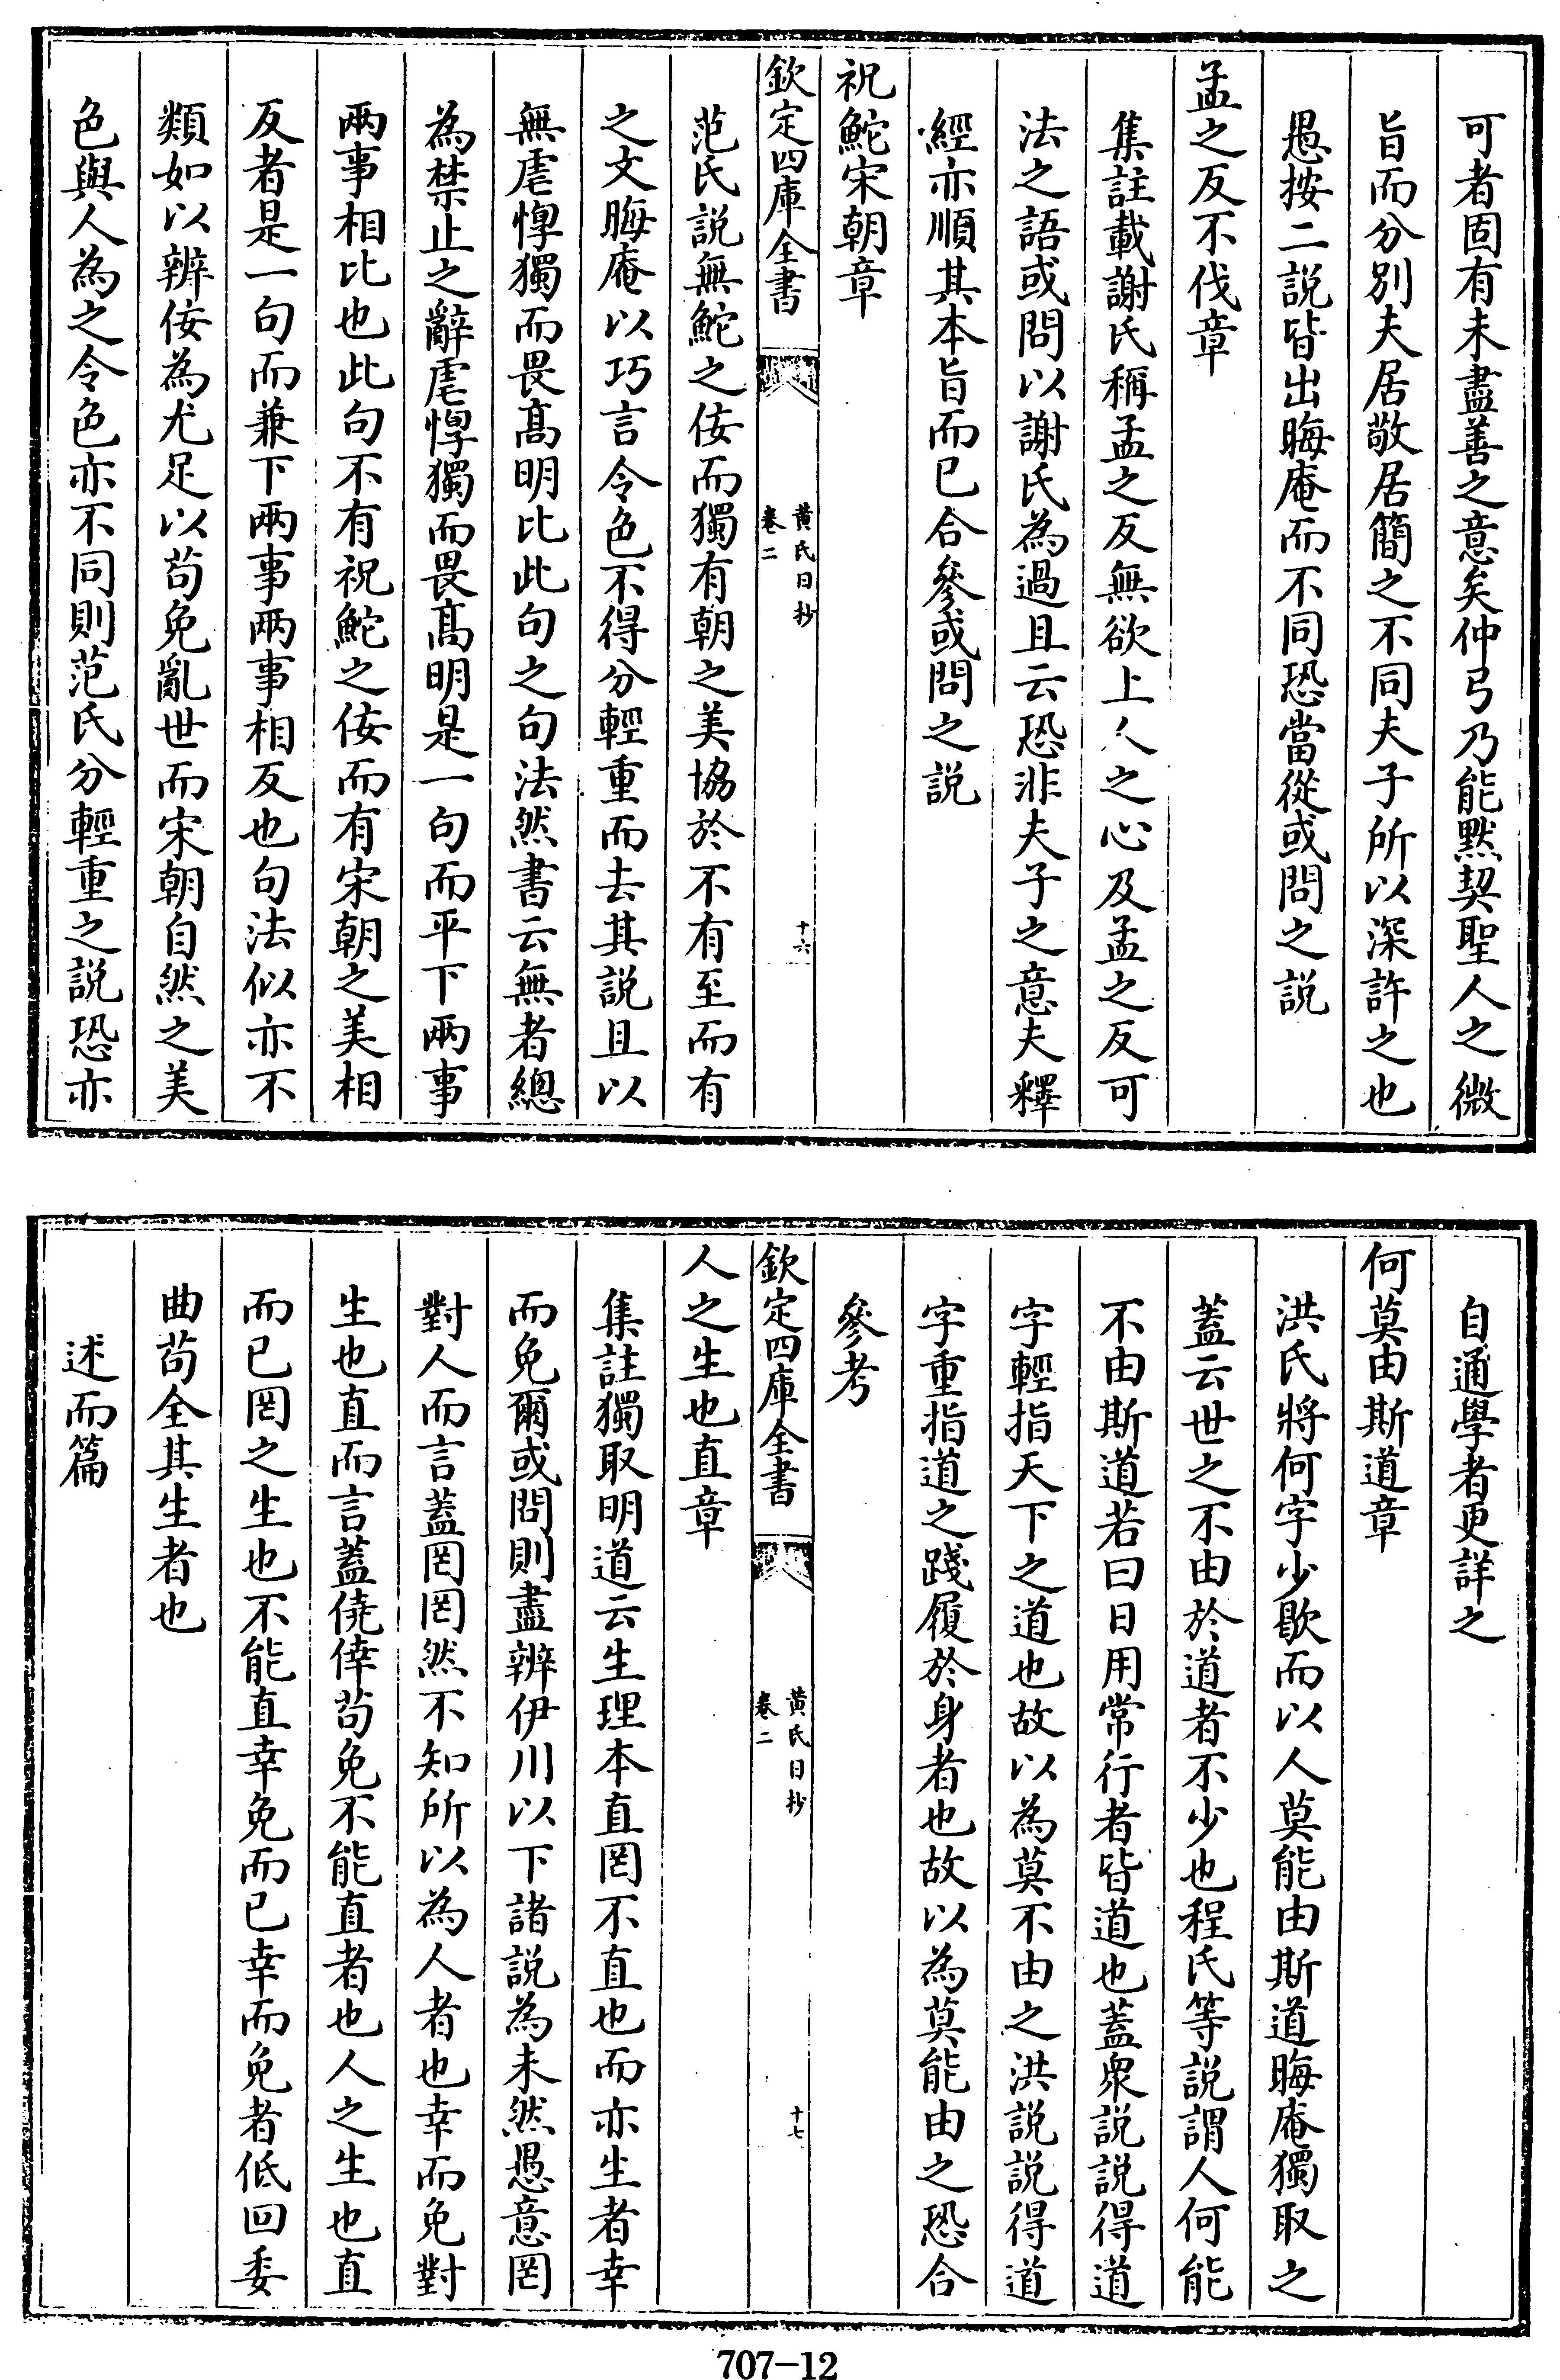 可者固有未盡善之意矣仲弓乃能黙契聖人之微
旨而分別夫居敬居簡之不同夫子所以深許之也
愚按二説皆出晦庵而不同恐當從或問之説
孟之反不伐章
集註載謝氏稱孟之反無欲上人之心及孟之反可
法之語或問以謝氏為過且云恐非夫子之意夫釋
經亦順其本旨而已合參或問之説
祝鮀宋朝章
欽定四庫全書
黄氏日抄
卷二
十六
范氏説無鮀之佞而獨有朝之美協於不有至而有
之文晦庵以巧言令色不得分輕重而去其説且以
無虐惸獨而畏髙明比此句之句法然書云無者總
為禁止之辭虐惸獨而畏髙明是一句而平下兩事
兩事相比也此句不有祝鮀之佞而有宋朝之美相
反者是一句而兼下兩事兩事相反也句法似亦不
類如以辨佞為尤足以茍免亂世而宋朝自然之美
色與人為之令色亦不同則范氏分輕重之説恐亦
自通學者更詳之
何莫由斯道章
洪氏將何字少歇而以人莫能由斯道晦庵獨取之
蓋云世之不由於道者不少也程氏等説謂人何能
不由斯道若曰日用常行者皆道也蓋衆説説得道
字輕指天下之道也故以為莫不由之洪説説得道
字重指道之踐履於身者也故以為莫能由之恐合
參考
欽定四庫全書
黄氏日抄
卷二
十七
人之生也直章
集註獨取明道云生理本直罔不直也而亦生者幸
而免爾或問則盡辨伊川以下諸説為未然愚意罔
對人而言蓋罔罔然不知所以為人者也幸而免對
生也直而言蓋僥倖茍免不能直者也人之生也直
而已罔之生也不能直幸免而已幸而免者低回委
曲茍全其生者也
述而篇
707-12